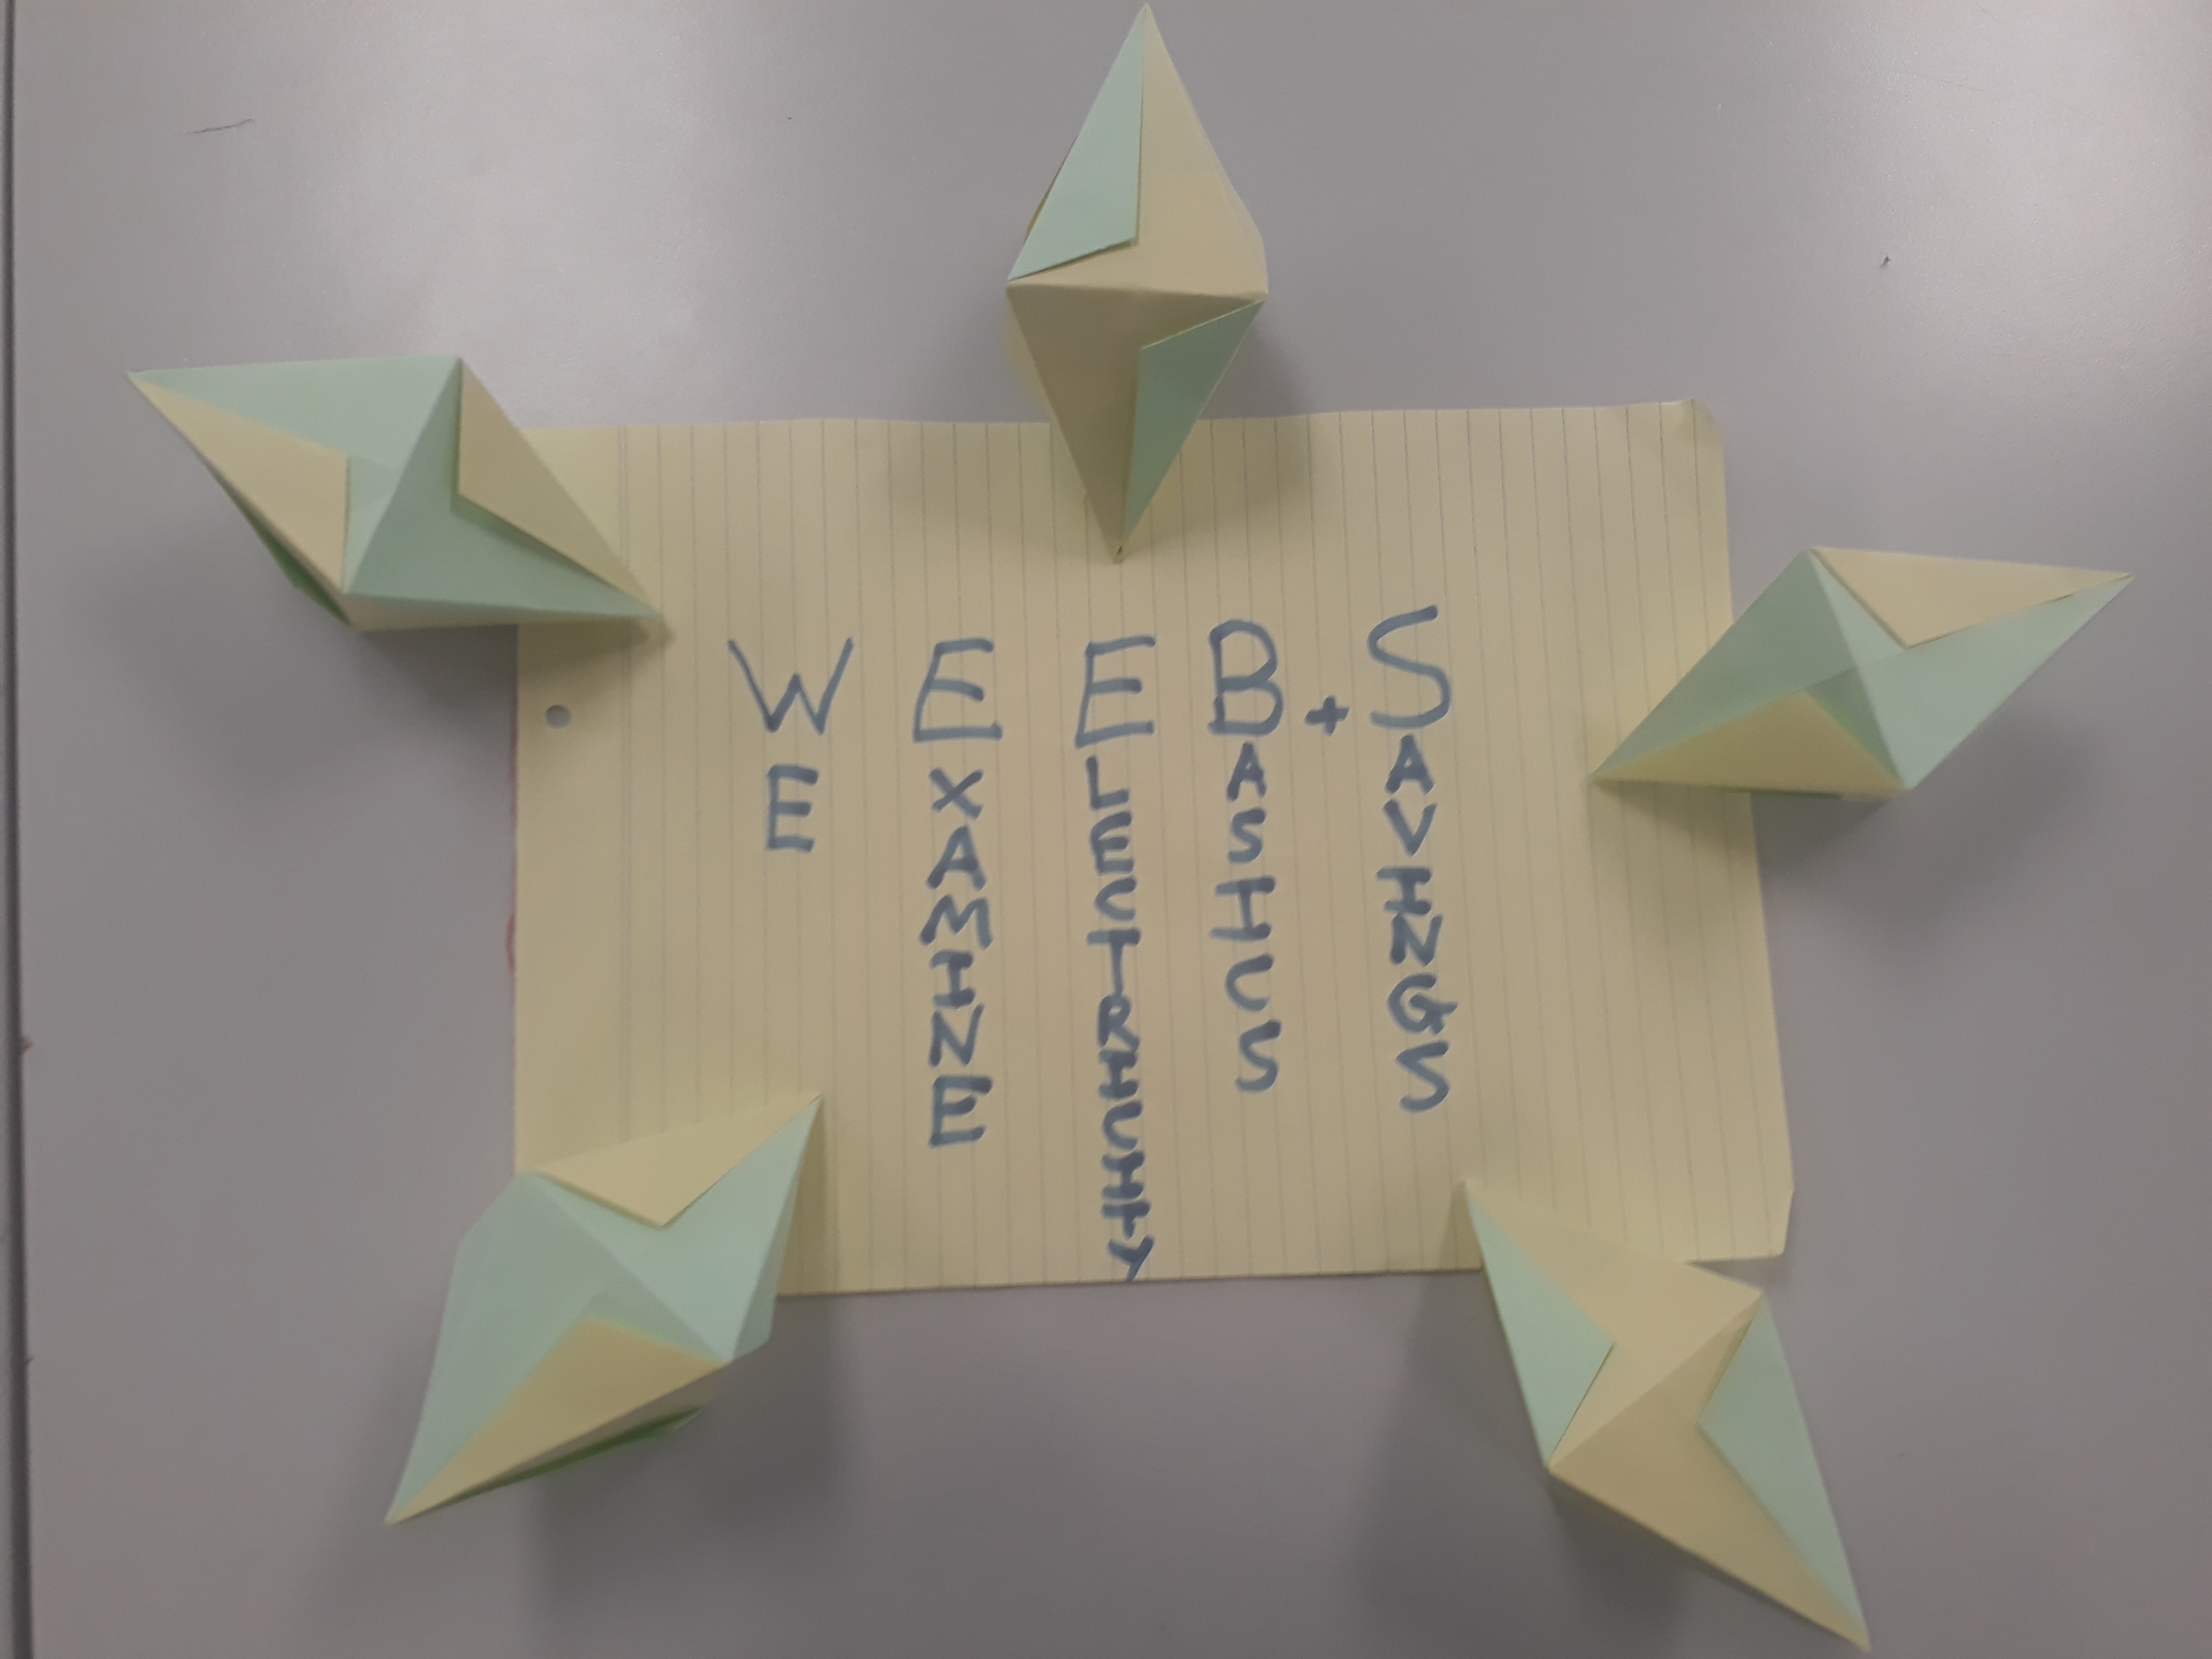 WE
EXAMINE
ELECTRICITY
BASICS
+
SAVINGS